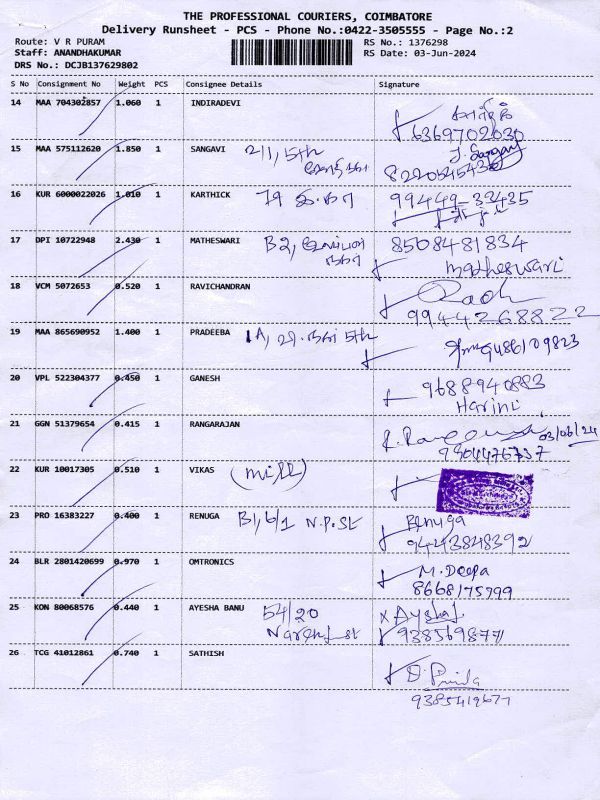 THE PROFESSIONAL COURIERS, COIMBATORE
Delivery Runsheet - PCS - Phone No.:0422-3505555 - Page No.:2
Route: V R PURAM RS No.: 1376298
Staff: ANANDHAKUMAR RS Date: 03-Jun-2024
DRS No.: DCJB137629802
S No Consignment No Weight PCS Consignee Details Signature
14 MAA 704302857 1.060 1 INDIRADEVI
6369702030
15 MAA 575112620 1.850 1 SANGAVI 2/1, 5th
16 KUR 6000022026 1.010 1 KARTHICK 79 99449-33435
17 DPI 10722948 2.430 1 MATHESWARI B2, 8508481834
matheswari
18 VCM 5072653 0.520 1 RAVICHANDRAN
9944268822
19 MAA 865690952 1.400 1 PRADEEBA 1A, 5th 9486109823
20 VPL 522304377 0.450 1 GANESH 9688940883
Harini
21 GGN 51379654 0.415 1 RANGARAJAN 03/06/24
9804476737
22 KUR 10017305 0.510 1 VIKAS (mill)
23 PRO 16383227 0.400 1 RENUGA B1/6/1 N.P.St Renuga
9443848392
24 BLR 2801420699 0.970 1 OMTRONICS M.Deepa
8668175799
25 KON 80068576 0.440 1 AYESHA BANU 54/20 x Aysha
938569877
26 TCG 41012861 0.740 1 SATHISH